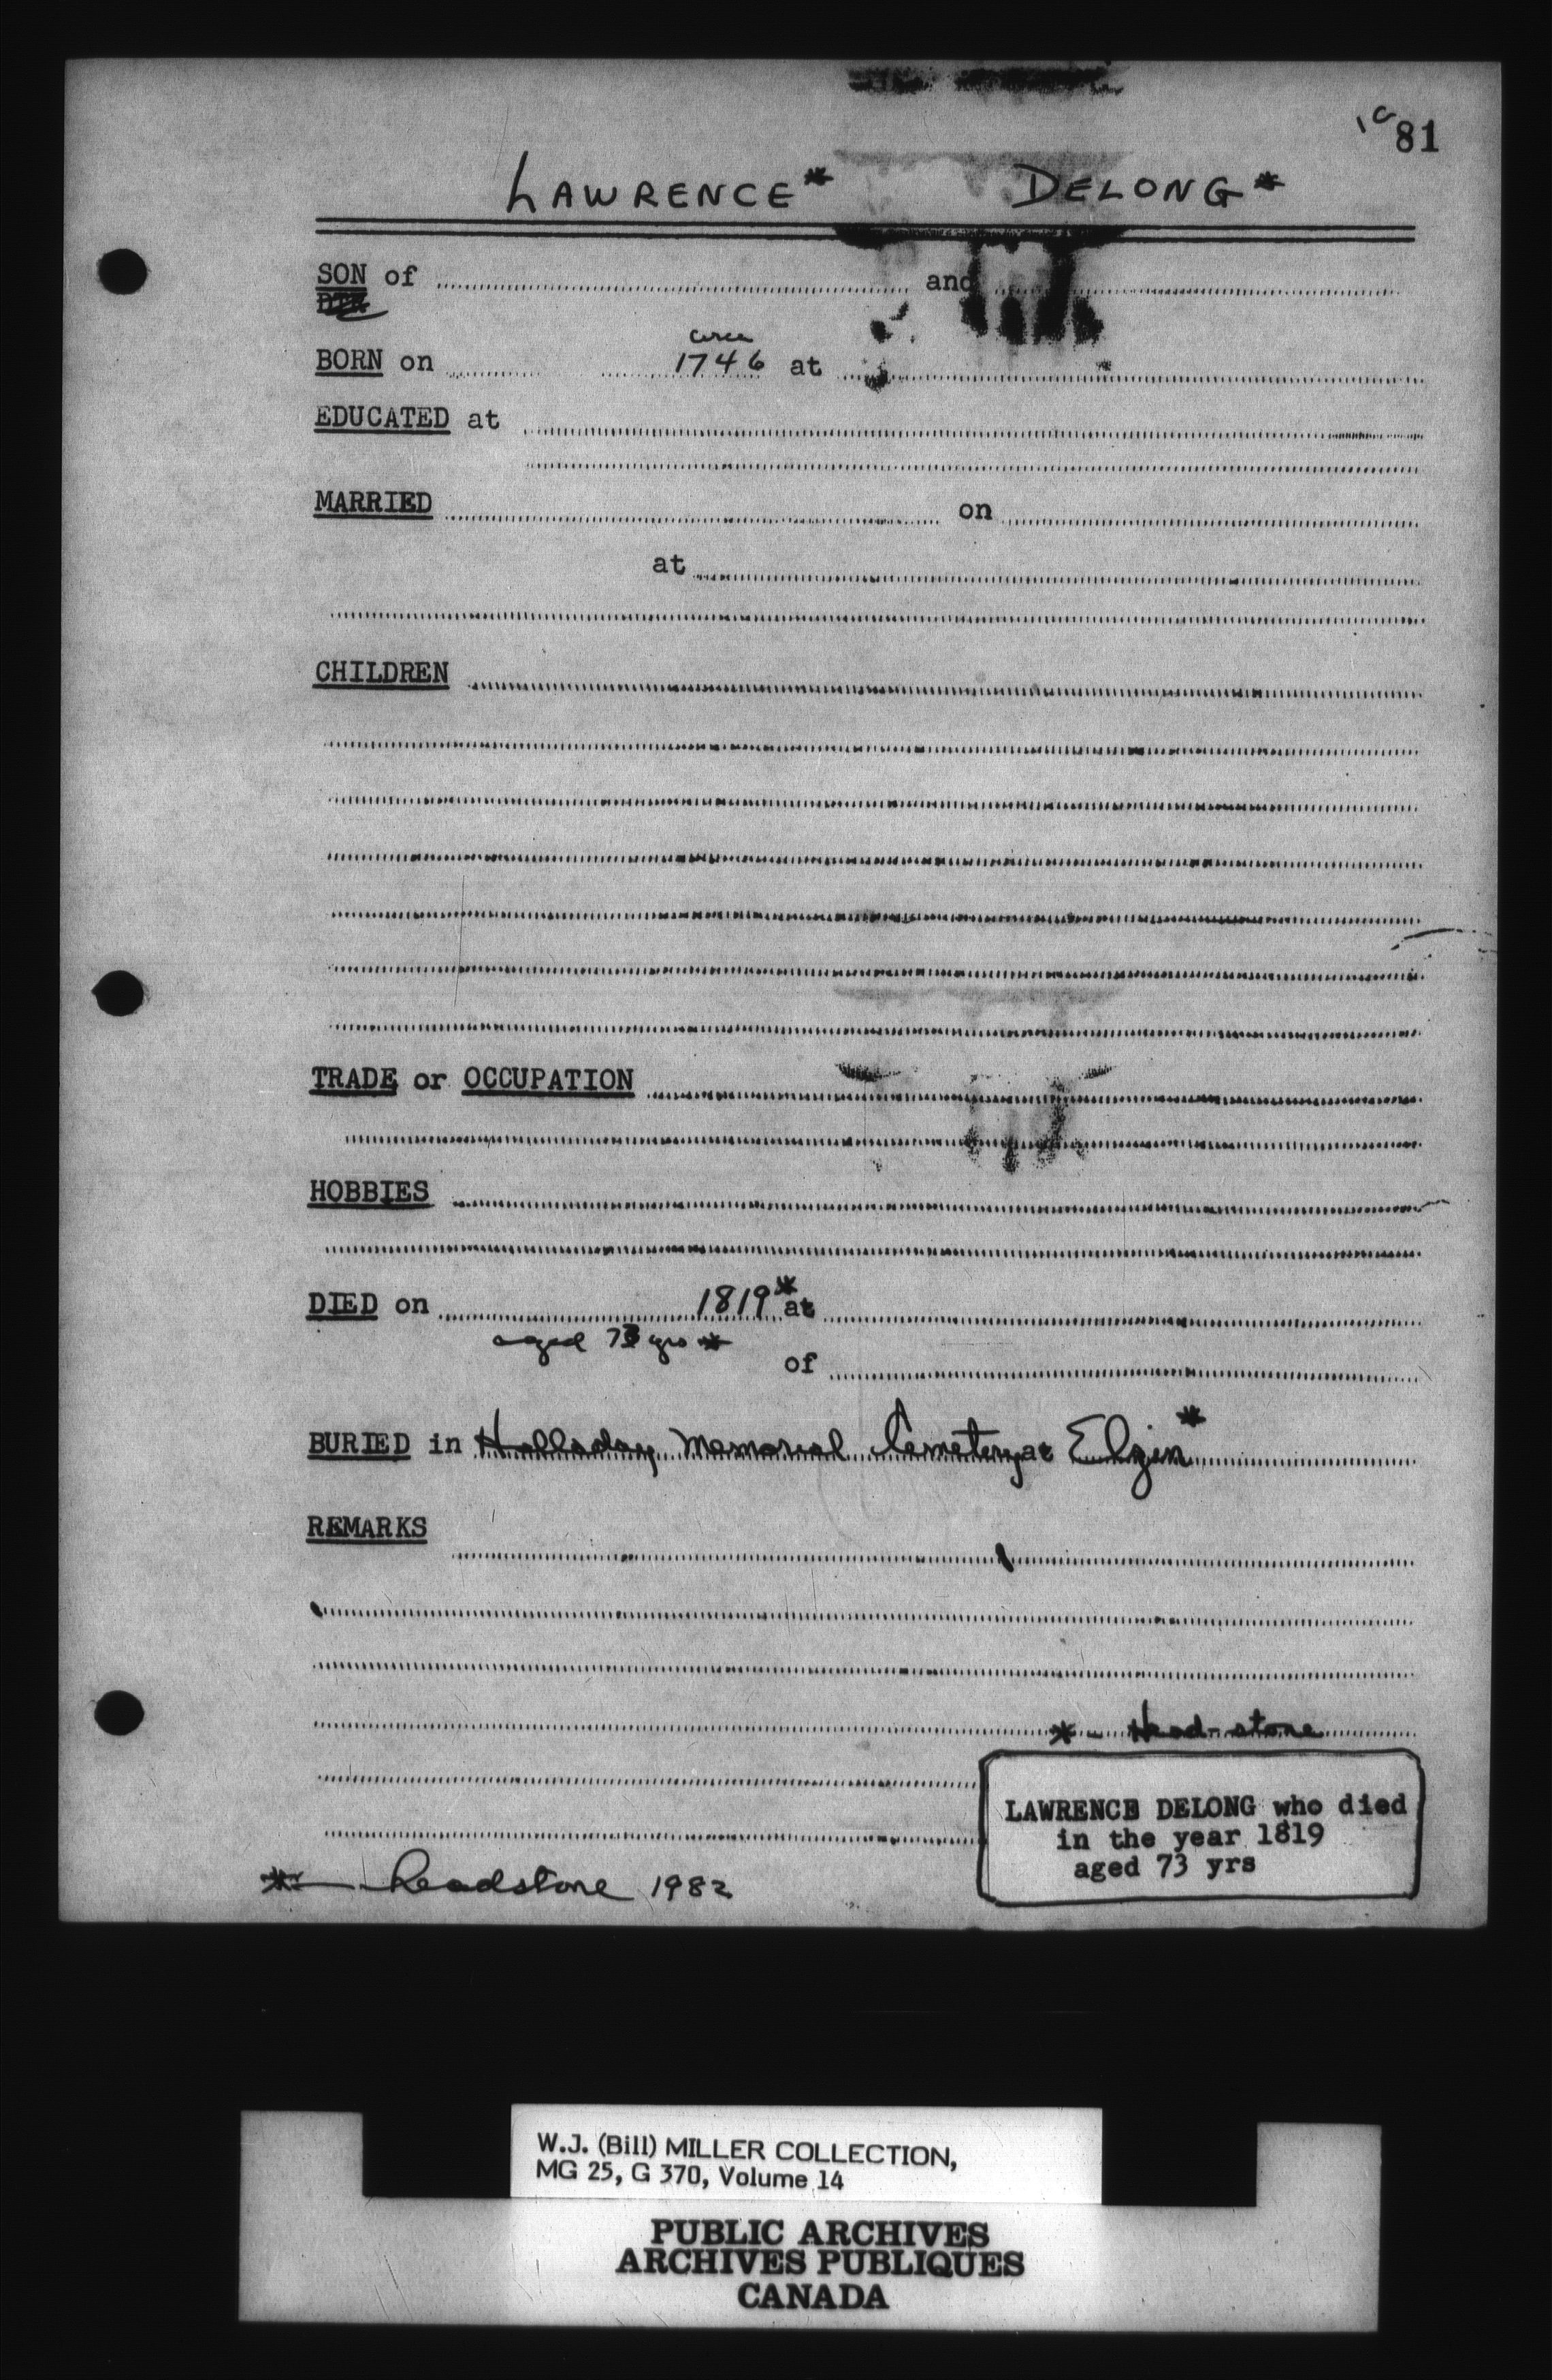 81
LAWRENCE* DELONG*
SON of and
DTR
BORN on circa 1746 at
EDUCATED at
MARRIED on
at
CHILDREN
TRADE or OCCUPATION
HOBBIES
DIED on 1819* at
aged 73 yrs *
of
BURIED in Halladay Memorial Cemetery at Elgin*
REMARKS
* - Head-stone
LAWRENCE DELONG who died
in the year 1819
aged 73 yrs
* Headstone 1982
W.J. (Bill) MILLER COLLECTION,
MG 25, G 370, Volume 14
PUBLIC ARCHIVES
ARCHIVES PUBLIQUES
CANADA